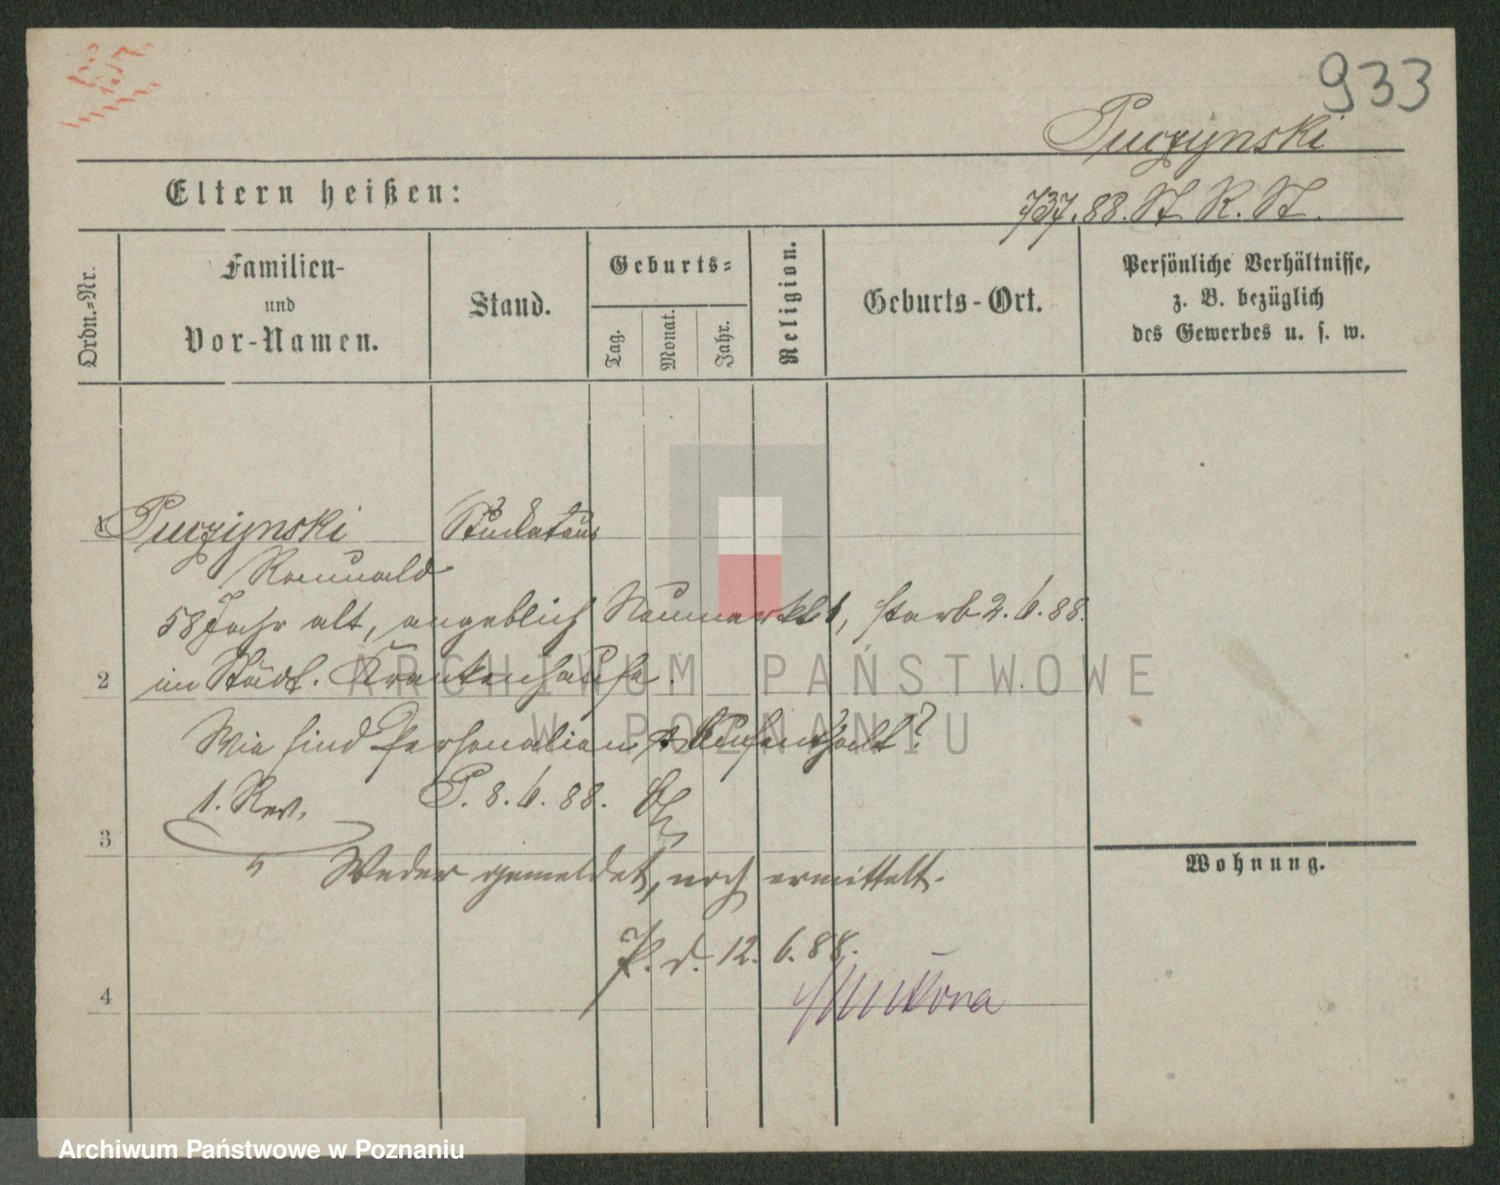 933
Puczynski
Eltern heißen:
737.88. St. R. St.
Ordn.-Nr.
Familien-
und
Vor-Namen.
Stand.
Geburts-
Tag.
Monat.
Jahr.
Religion.
Geburts-Ort.
Persönliche Verhältnisse,
z. B. bezüglich
des Gewerbes u. s. w.
1 Puczynski Stuckateur
Romuald
58 Jahr alt, angeblich Neumarkt 1, starb 2.6.88.
2 im Städt. Krankenhause.
Wie sind Personalien Aufenthalt?
1. Rev. P. 8.6.88.
3
Wohnung.
" Weder gemeldet, noch ermittelt.
P. d. 12.6.88.
4
ARCHIWUM PAŃSTWOWE
W POZNANIU
Archiwum Państwowe w Poznaniu